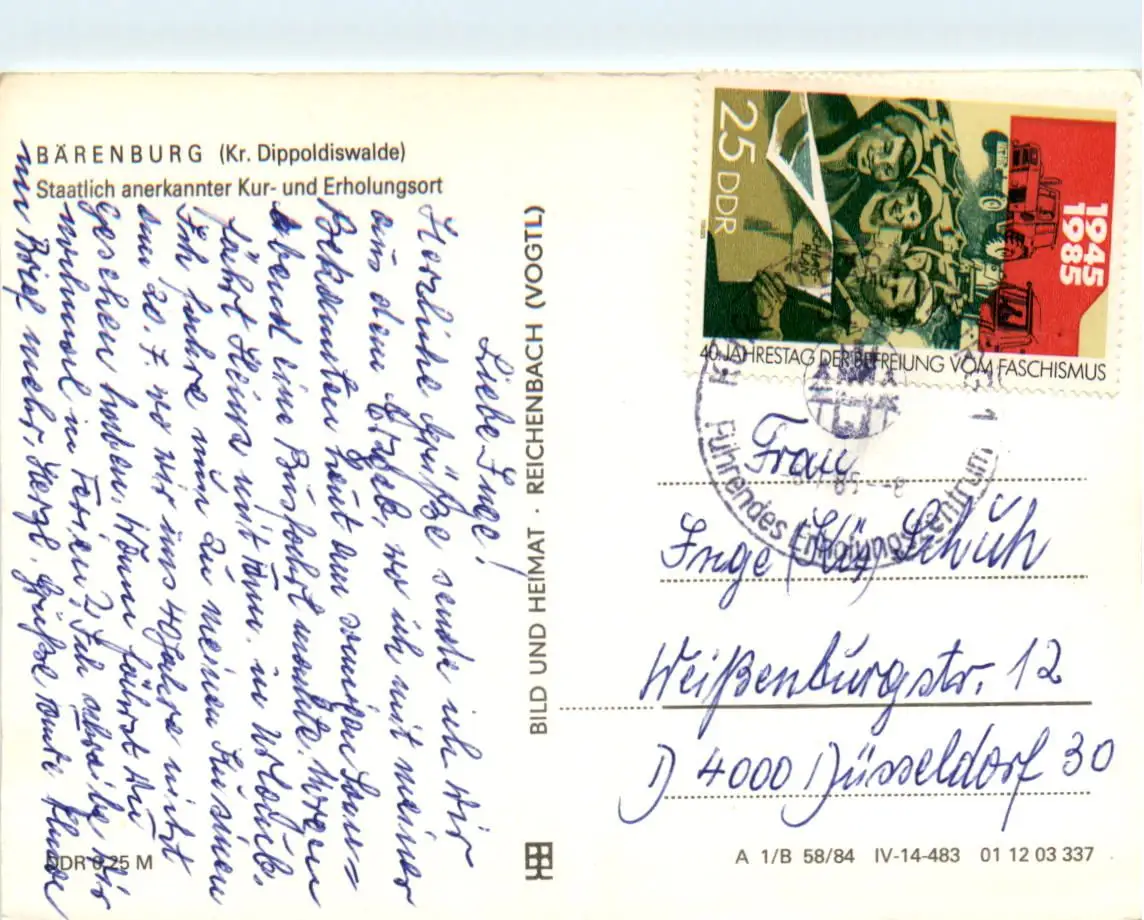 BÄRENBURG (Kr. Dippoldiswalde)
Staatlich anerkannter Kur- und Erholungsort
Liebe Inge!
Herzliche Grüße sende ich Dir
aus dem Erzgeb., wo ich mit meiner
Bekannten heut am sonnigen Sonn=
abend eine Busfahrt machte. Morgen
fährt Heinz mit Ann. in Urlaub.
Ich fahre nun zu meinen Kusinen
am 20. 7. wo wir uns 40 Jahre nicht
gesehen haben. Wann fährst Du
nochmal in Ferien? Ich schreibe Dir
im Brief mehr. Herzl. Grüße Tante
DDR 0,25 M
BILD UND HEIMAT · REICHENBACH (VOGTL)
25 DDR
1945
1985
40. JAHRESTAG DER BEFREIUNG VOM FASCHISMUS
Führendes Erholungszentrum
Frau
Inge Schüh
Weißenburgstr. 12
D 4000 Düsseldorf 30
A 1/B 58/84 IV-14-483 01 12 03 337